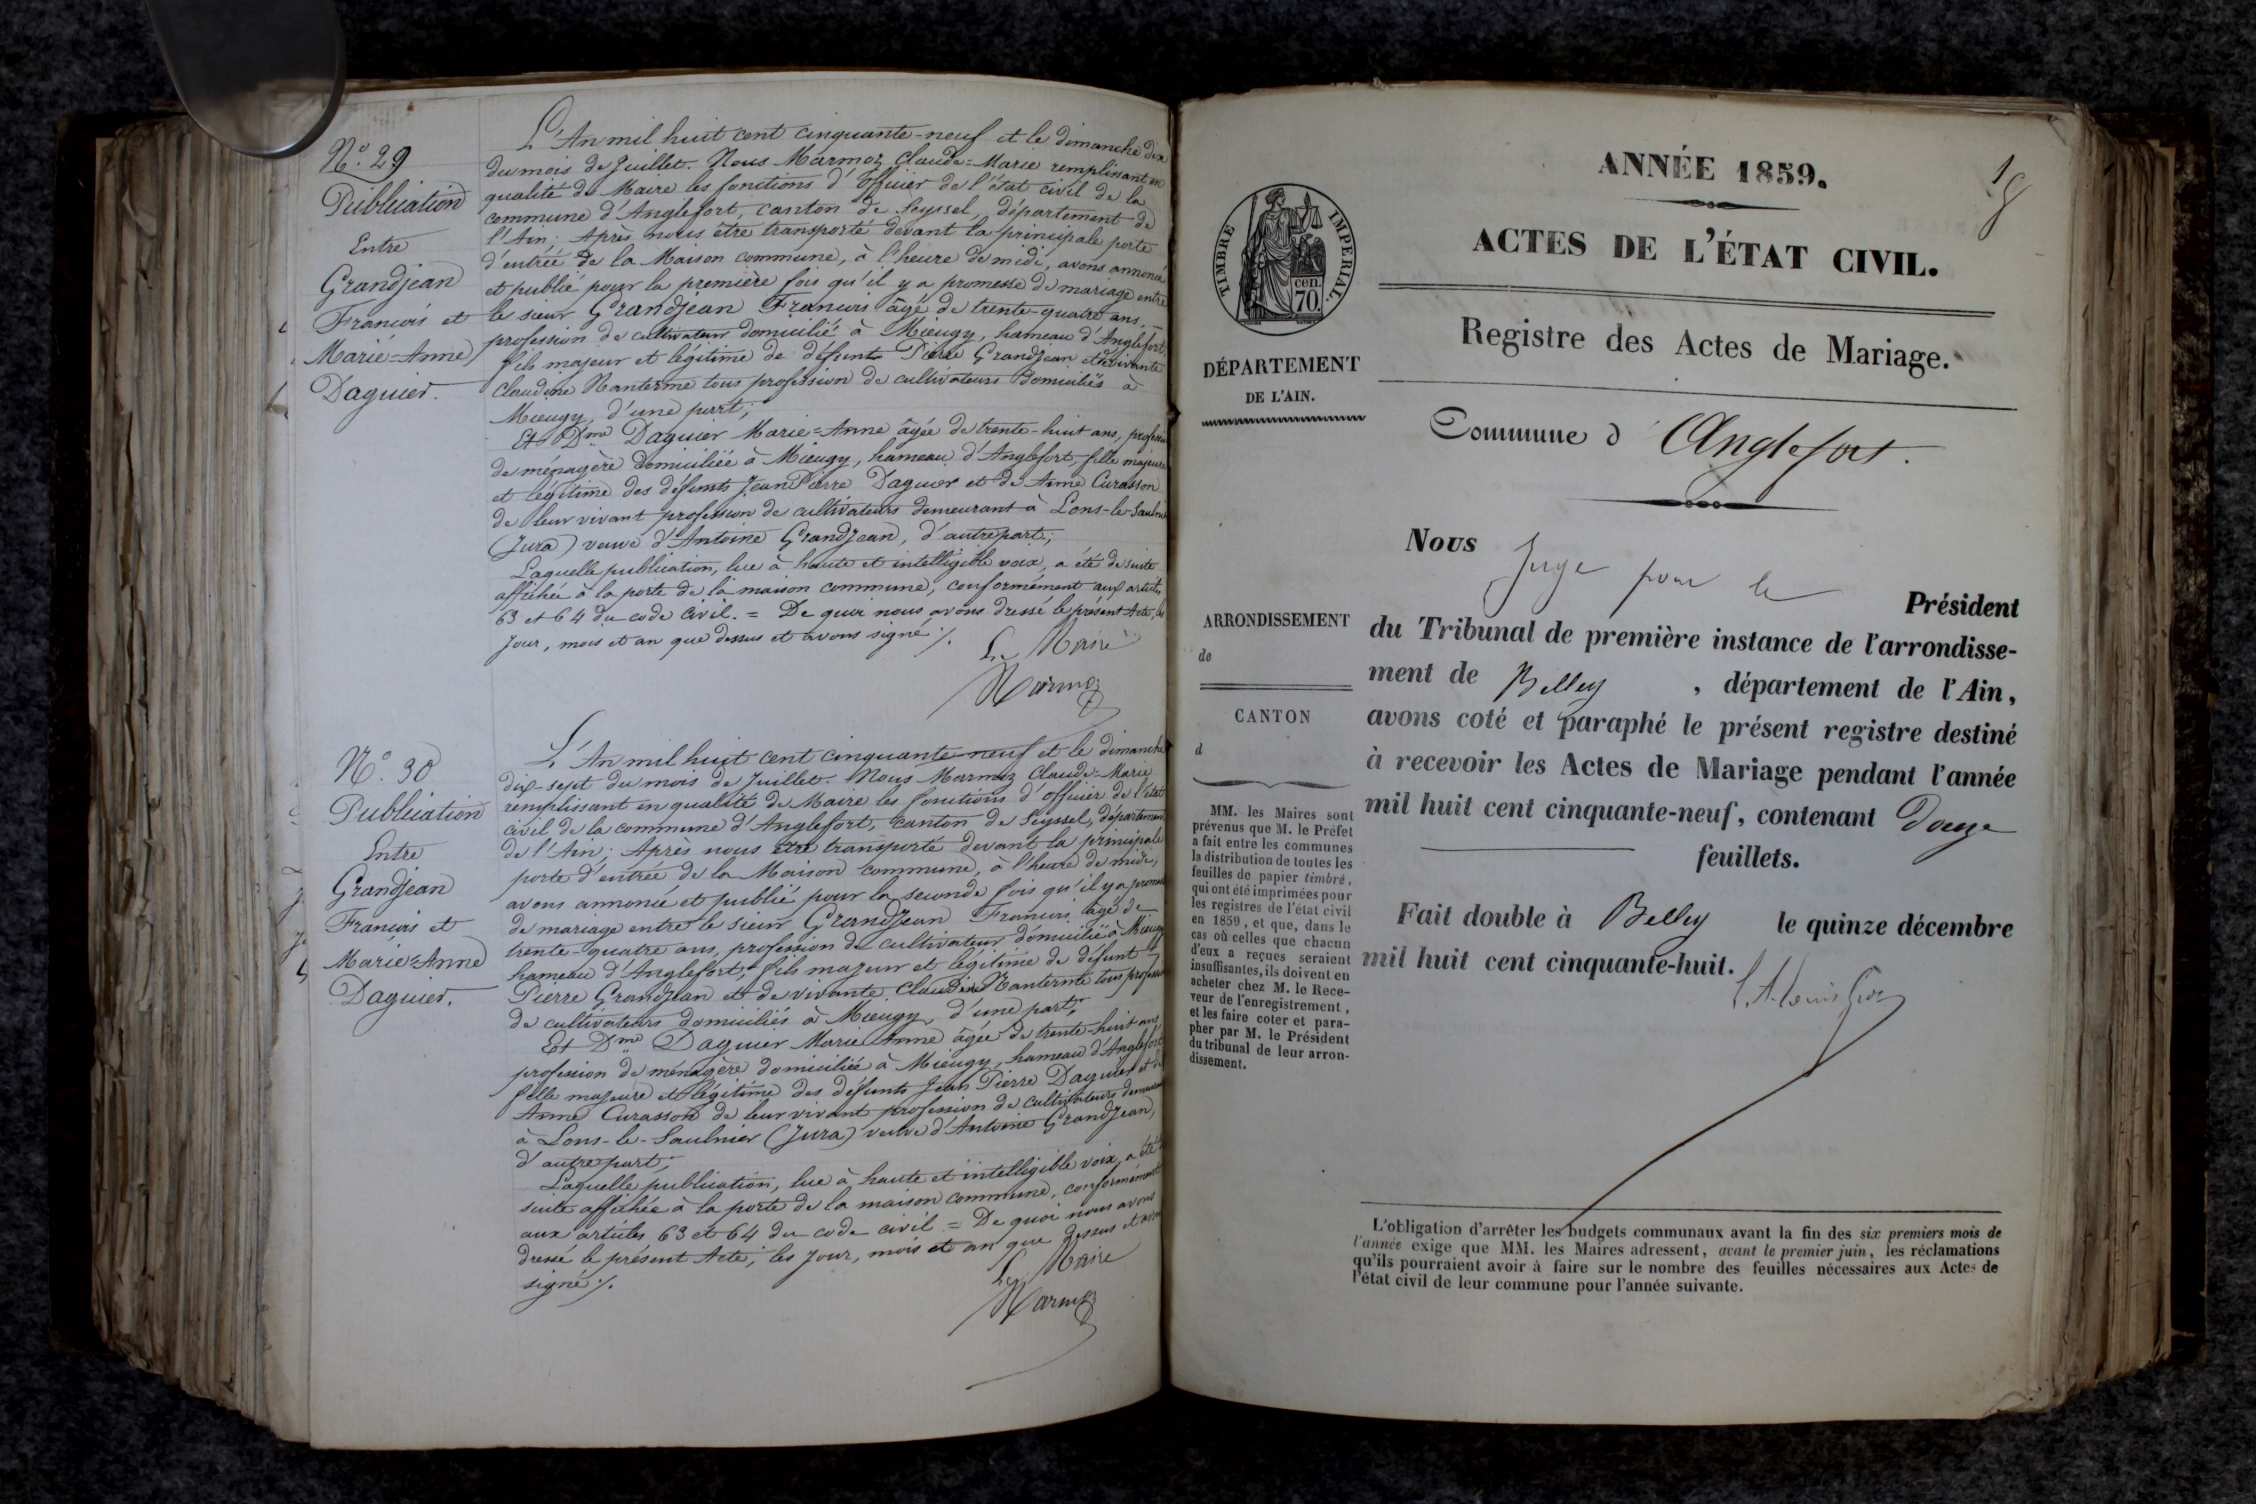 N.º 29
Publication
Entre
Grandjean
François et
Marie=Anne
Daguier.
L'An mil huit cent cinquante-neuf et le dimanche dix
du mois de Juillet. Nous Marmoz Claude=Marie remplissant en
qualité de Maire les fonctions d'officier de l'état civil de la
commune d'Anglefort, canton de Seyssel, département de
l'Ain; Après nous être transporté devant la principale porte
d'entrée de la Maison commune, à l'heure de midi, avons annoncé
et publié pour la première fois qu'il y a promesse de mariage entre
le sieur Grandjean François âgé de trente-quatre ans,
profession de cultivateur domicilié à Mieugy, hameau d'Anglefort,
fils majeur et légitime de défunt Pierre Grandjean et de vivante
Claudine Nanterme tous profession de cultivateurs domiciliés à
Mieugy, d'une part;
Et Dme Daguier Marie=Anne âgée de trente-huit ans, profession
de ménagère domiciliée à Mieugy, hameau d'Anglefort, fille majeure
et légitime des défunts Jean Pierre Daguier et de Anne Curasson
de leur vivant profession de cultivateurs demeurant à Lons-le-Saulnier
(Jura) veuve d'Antoine Grandjean, d'autre part;
Laquelle publication, lue à haute et intelligible voix, a été de suite
affichée à la porte de la maison commune, conformément aux articles
63 et 64 du code civil. = De quoi nous avons dressé le présent Acte, les
jour, mois et an que dessus et avons signé ./.
Le Maire
Marmoz
N.º 30
Publication
Entre
Grandjean
François et
Marie=Anne
Daguier.
L'An mil huit cent cinquante-neuf et le dimanche
dix-sept du mois de Juillet. Nous Marmoz Claude=Marie
remplissant en qualité de Maire les fonctions d'officier de l'état
civil de la commune d'Anglefort, canton de Seyssel, département
de l'Ain; Après nous être transporté devant la principale
porte d'entrée de la Maison commune, à l'heure de midi,
avons annoncé et publié pour la seconde fois qu'il y a promesse
de mariage entre le sieur Grandjean François âgé de
trente-quatre ans, profession de cultivateur domicilié à Mieugy
hameau d'Anglefort, fils majeur et légitime de défunt
Pierre Grandjean et de vivante Claudine Nanterme tous profession
de cultivateurs domiciliés à Mieugy, d'une part;
Et Dme Daguier Marie Anne âgée de trente-huit ans
profession de ménagère domiciliée à Mieugy, hameau d'Anglefort
fille majeure et légitime des défunts Jean Pierre Daguier et de
Anne Curasson de leur vivant profession de cultivateurs demeurant
à Lons-le-Saulnier (Jura) veuve d'Antoine Grandjean,
d'autre part;
Laquelle publication, lue à haute et intelligible voix, a été
suite affichée à la porte de la maison commune, conformément
aux articles 63 et 64 du code civil = De quoi nous avons
dressé le présent Acte; les jour, mois et an que dessus et avons
signé ./.
Le Maire
Marmoz
TIMBRE IMPERIAL.
cen.
70.
DÉPARTEMENT
DE L'AIN.
ARRONDISSEMENT
de
CANTON
d
MM. les Maires sont
prévenus que M. le Préfet
a fait entre les communes
la distribution de toutes les
feuilles de papier timbré,
qui ont été imprimées pour
les registres de l'état civil
en 1859, et que, dans le
cas où celles que chacun
d'eux a reçues seraient
insuffisantes, ils doivent en
acheter chez M. le Rece-
veur de l'enregistrement,
et les faire coter et para-
pher par M. le Président
du tribunal de leur arron-
dissement.
1
ANNÉE 1859.
ACTES DE L'ÉTAT CIVIL.
Registre des Actes de Mariage.
Commune d'Anglefort.
Nous Juge pour le Président
du Tribunal de première instance de l'arrondisse-
ment de Belley, département de l'Ain,
avons coté et paraphé le présent registre destiné
à recevoir les Actes de Mariage pendant l'année
mil huit cent cinquante-neuf, contenant douze
feuillets.
Fait double à Belley le quinze décembre
mil huit cent cinquante-huit.
L'obligation d'arrêter les budgets communaux avant la fin des six premiers mois de
l'année exige que MM. les Maires adressent, avant le premier juin, les réclamations
qu'ils pourraient avoir à faire sur le nombre des feuilles nécessaires aux Actes de
l'état civil de leur commune pour l'année suivante.